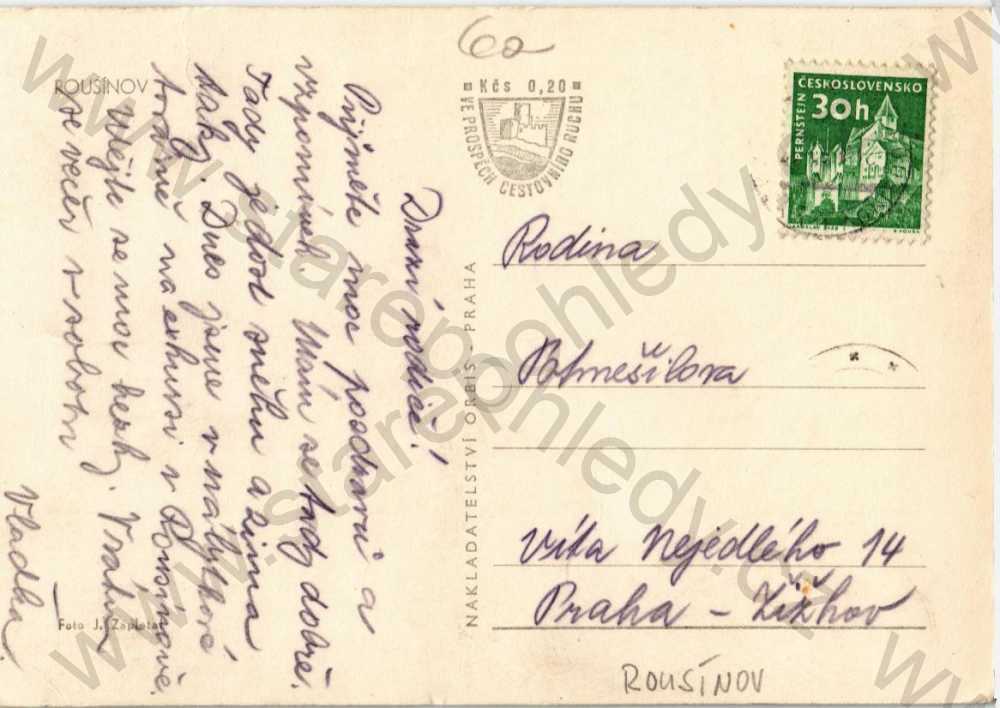 60
ROUŠÍNOV
Kčs 0,20
VE PROSPĚCH CESTOVNÍHO RUCHU
ČESKOSLOVENSKO
30h
PERNŠTEJN
Drazí rodiče!
Přijměte moc pozdravů a
vzpomínek. Mám se tady dobře.
Tady je dost sněhu a zima
taky. Dnes jsme v nábytkové
továrně na exkursi v Rousínově.
Mějte se moc hezky. Vrátím
se večer v sobotu
Vladka.
Foto J. Zapletal
NAKLADATELSTVÍ ORBIS - PRAHA
Rodina
Pohnešilova
Víta Nejedlého 14
Praha - Žižkov
ROUŠÍNOV
www.starepohledy.cz
www.starepohledy.cz